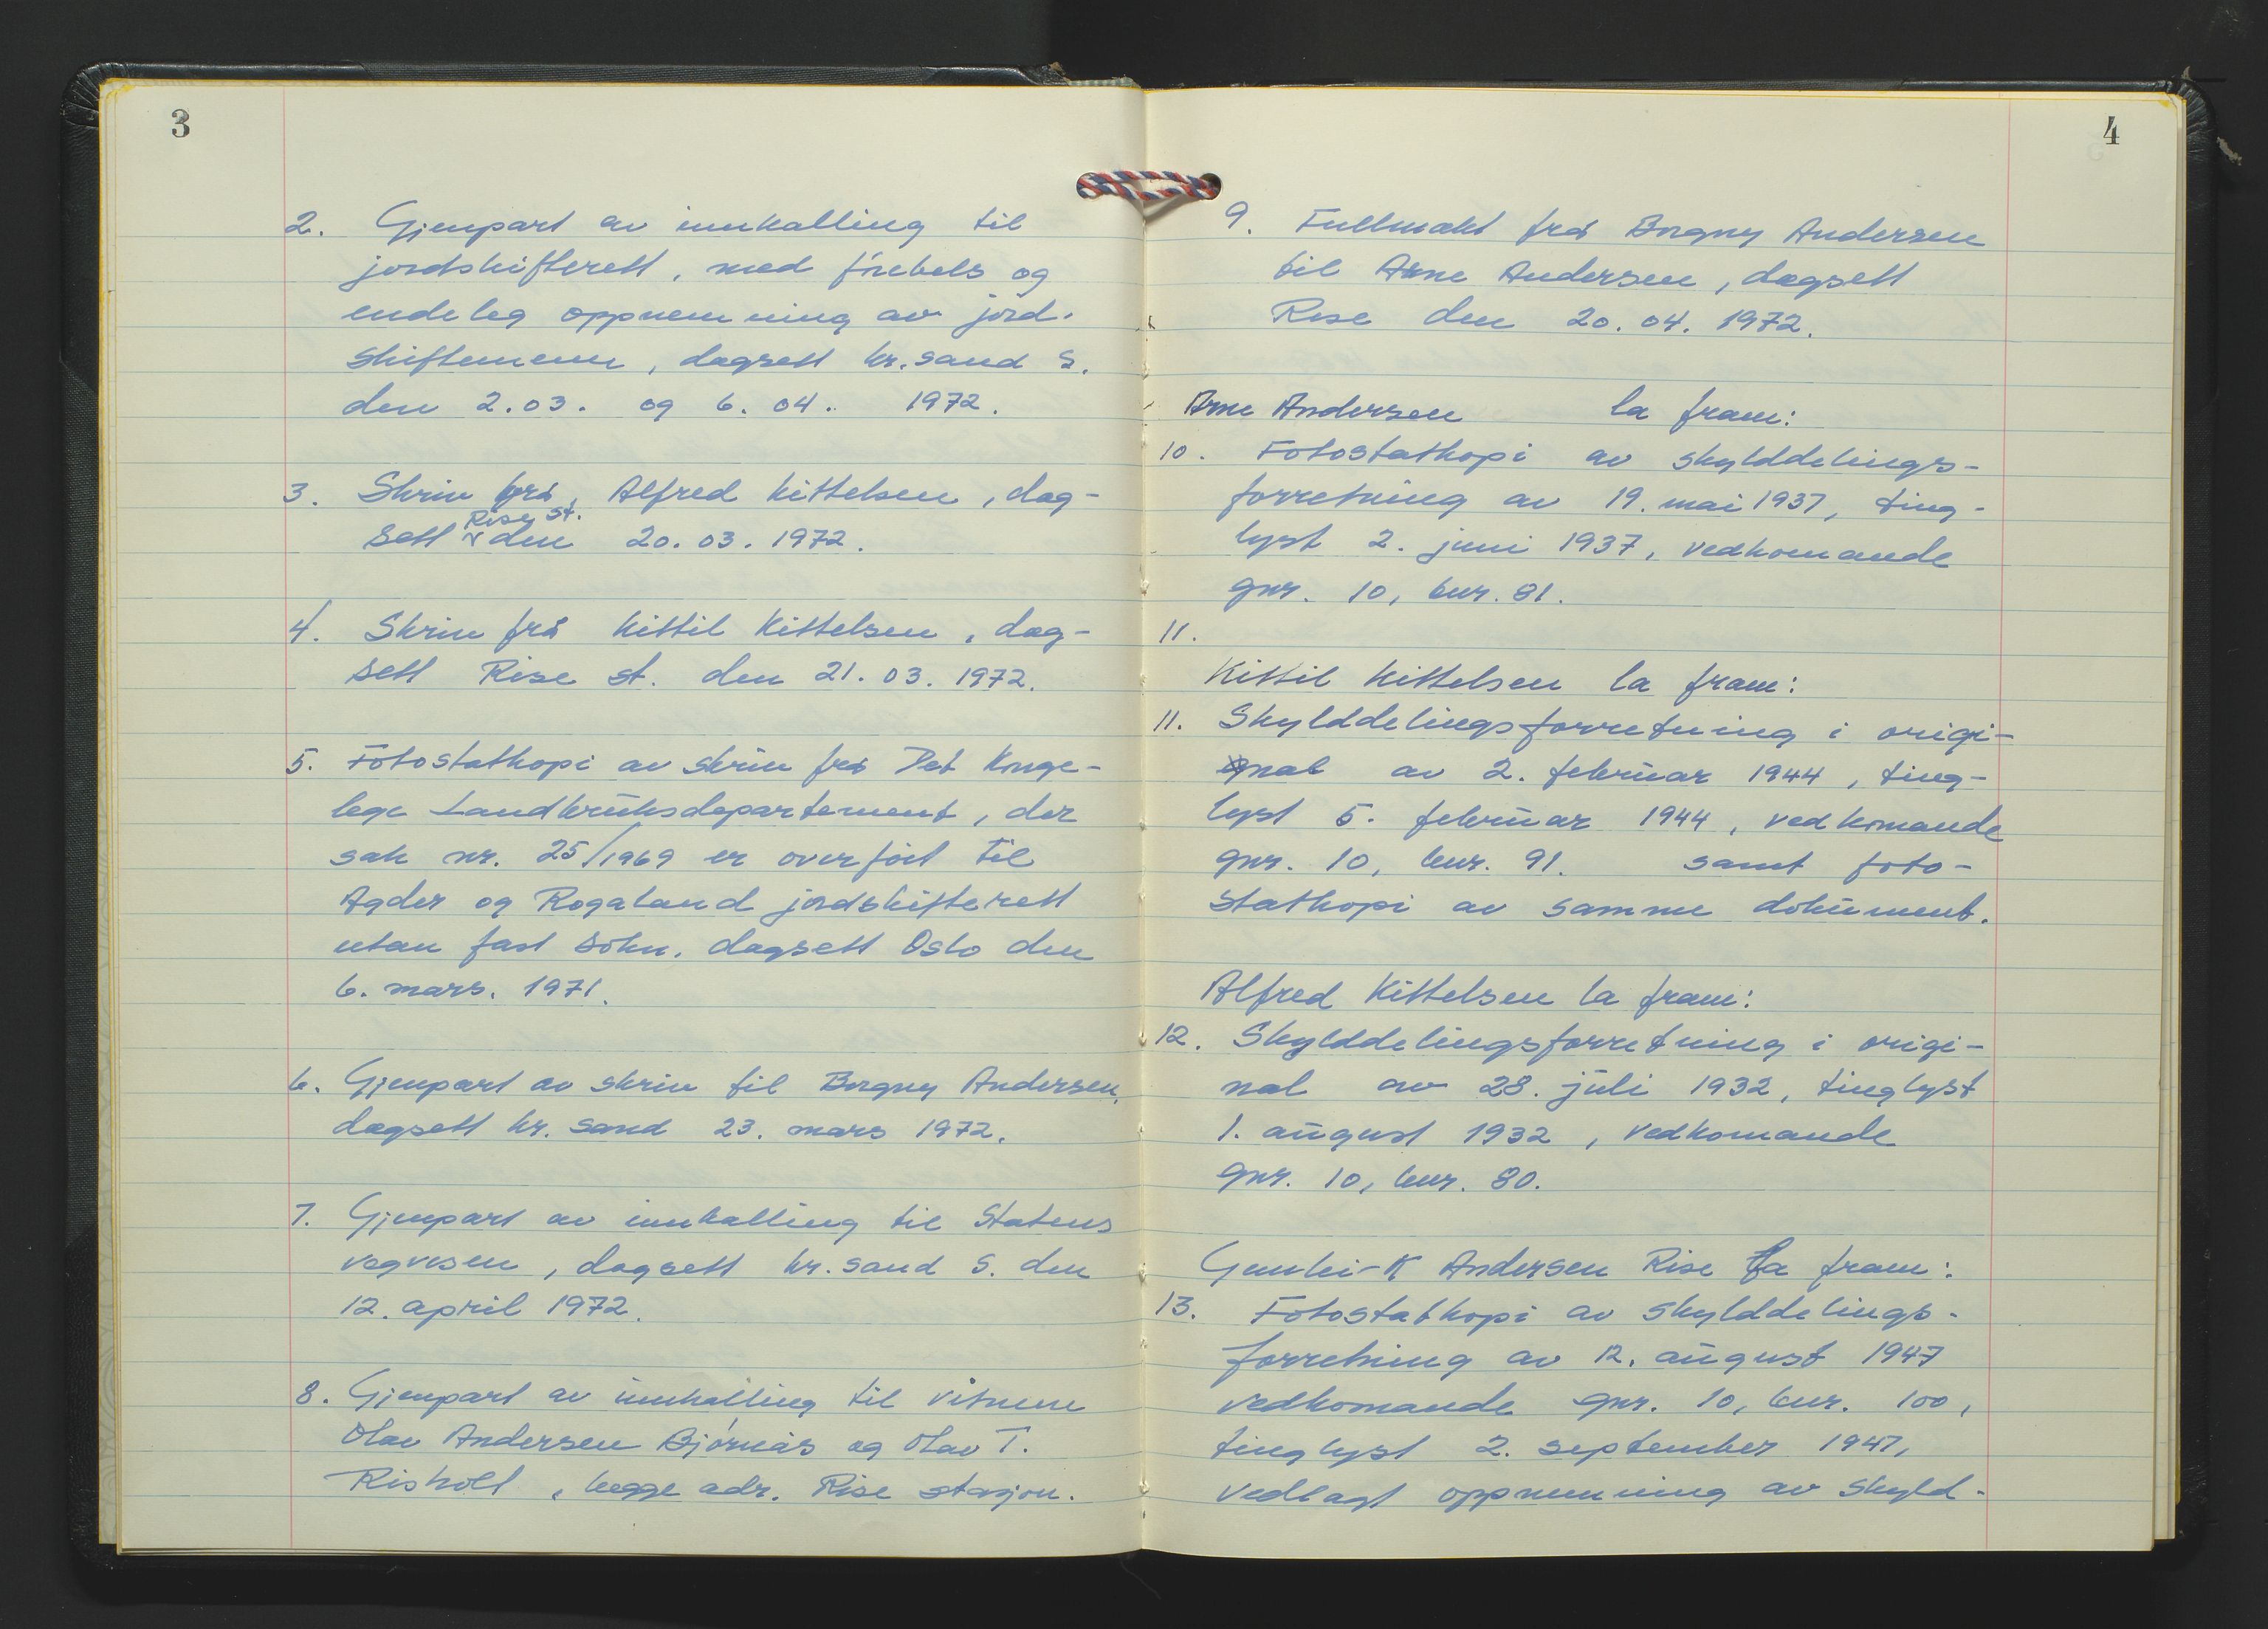 3
2. Gjenpart av innkalling til
jordskifterett, med førebels og
endeleg oppnemning av jord-
skiftemenn, dagsett kr.sand S.
den 2.03. og 6.04. 1972.
3. Skriv frå, Alfred Kittelsen, dag-
Rise st.
sett den 20.03.1972.
4. Skriv frå Kittil Kittelsen, dag-
sett Rise st. den 21.03.1972.
5. Fotostatkopi av skriv frå Det Konge-
lege Landbruksdepartement, der
sak nr. 25/1969 er overført til
Agder og Rogaland jordskifterett
utan fast sokn, dagsett Oslo den
6. mars. 1971.
6. Gjenpart av skriv til Borgny Andersen,
dagsett kr.sand 23. mars 1972.
7. Gjenpart av innkalling til Statens
vegvesen, dagsett kr.sand S. den
12. april 1972.
8. Gjenpart av innkalling til vitnene
Olav Andersen Bjørnås og Olav T.
Risholt, begge adr. Rise stasjon.
4
9. Fullmakt frå Borgny Andersen
til Arne Andersen, dagsett
Rise den 20.04.1972.
Arne Andersen la fram:
10. Fotostatkopi av skylddelings-
forretning av 19. mai 1937, ting-
lyst 2. juni 1937, vedkomande
gnr. 10, bnr. 81.
11.
Kittil Kittelsen la fram:
11. Skylddelingsforretning i origi-
nal av 2. februar 1944, ting-
lyst 5. februar 1944, vedkomande
gnr. 10, bnr. 91. samt foto-
statkopi av samme dokument.
Alfred Kittelsen la fram:
12. Skylddelingsforretning i origi-
nal av 28. juli 1932, tinglyst
1. august 1932, vedkomande
gnr. 10, bnr. 80.
K Andersen Rise la fram:
13. Fotostatkopi av skylddelings-
forretning av 12. august 1947
vedkomande gnr. 10, bnr. 100,
tinglyst 2. september 1947,
vedlagt oppnemning av skyld-